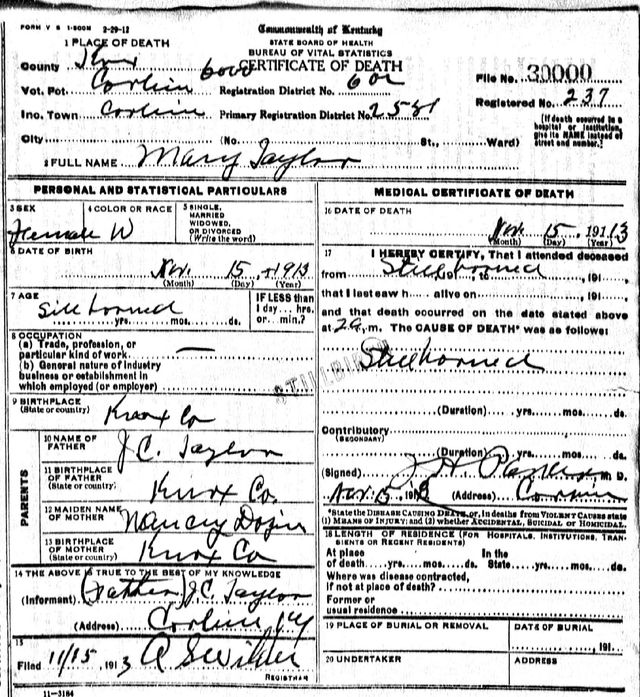 FORM V S 1-500M 2-29-12
Commonwealth of Kentucky
STATE BOARD OF HEALTH
BUREAU OF VITAL STATISTICS
CERTIFICATE OF DEATH
1 PLACE OF DEATH
County Knox
Vot. Pct. Corbin 6000 Registration District No. 602
File No. 30000
Inc. Town Corbin Primary Registration District No. 2581
Registered No. 237
City (No. St., Ward)
[If death occurred in a hospital or institution, give its NAME instead of street and number.]
2 FULL NAME Mary Taylor
PERSONAL AND STATISTICAL PARTICULARS
3 SEX Female
4 COLOR OR RACE W
5 SINGLE, MARRIED WIDOWED, OR DIVORCED (Write the word)
6 DATE OF BIRTH
Nov. 15, 1913
(Month) (Day) (Year)
7 AGE
Sill borned
yrs. mos. ds.
IF LESS than 1 day... hrs. or... min.?
8 OCCUPATION
(a) Trade, profession, or particular kind of work. —
(b) General nature of industry business or establishment in which employed (or employer)
STILLBIRTH
9 BIRTHPLACE
(State or country) Knox Co
PARENTS
10 NAME OF FATHER J.C. Taylor
11 BIRTHPLACE OF FATHER (State or country) Knox Co.
12 MAIDEN NAME OF MOTHER Nancy
13 BIRTHPLACE OF MOTHER (State or country) Knox Co
14 THE ABOVE IS TRUE TO THE BEST OF MY KNOWLEDGE
(Informant) Father J.C. Taylor
(Address) Corbin Ky
15
Filed 11/15, 1913
REGISTRAR
11-3184
MEDICAL CERTIFICATE OF DEATH
16 DATE OF DEATH
Nov. 15, 1913
(Month) (Day) (Year)
17 I HEREBY CERTIFY, That I attended deceased
from Stillborned, 191, to, 191,
that I last saw h alive on, 191,
and that death occurred on the date stated above
at 2 a, m. The CAUSE OF DEATH* was as follows:
Stillborned
(Duration) yrs. mos. ds.
Contributory
(SECONDARY)
(Duration) yrs. mos. ds.
(Signed) M. D.
Nov. 15, 1913 (Address) Corbin
*State the DISEASE CAUSING DEATH, or, in deaths from VIOLENT CAUSES state
(1) MEANS OF INJURY; and (2) whether ACCIDENTAL, SUICIDAL or HOMICIDAL.
18 LENGTH OF RESIDENCE (FOR HOSPITALS, INSTITUTIONS, TRANSIENTS OR RECENT RESIDENTS)
At place of death yrs. mos. ds. In the State yrs. mos. ds.
Where was disease contracted, if not at place of death?
Former or usual residence
19 PLACE OF BURIAL OR REMOVAL
DATE OF BURIAL
191
20 UNDERTAKER
ADDRESS